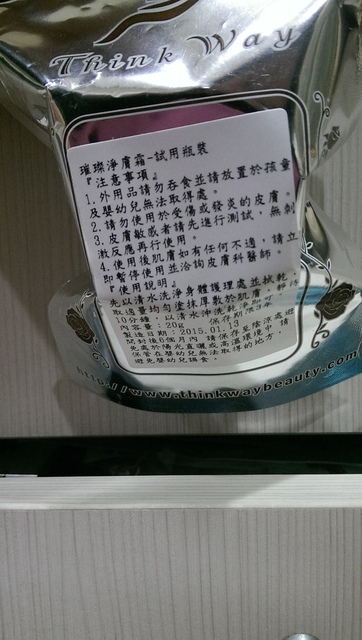 Think Way
璀璨淨膚霜-試用瓶裝
『注意事項』
1.外用品請勿吞食並請放置於孩童
及嬰幼兒無法取得處。
2.請勿使用於受傷或發炎的皮膚。
3.皮膚敏感者請先進行測試，無刺
激反應再行使用。
4.使用後肌膚如有任何不適，請立
即暫停使用並洽詢皮膚科醫師。
『使用說明』
先以清水洗淨身體護理處並拭乾，
取適量均勻塗抹厚敷於肌膚，靜待
10分鐘，以清水沖洗乾淨即可。
內容量：20g 保存期限3年
製造日期：2015.01.13
開封後6個月內 請保存至陰涼處避
免處於陽光直曬或高溫環境中，請
保管在嬰幼兒無法取得的地方，
避免嬰幼兒誤食。
http://www.thinkwaybeauty.com/